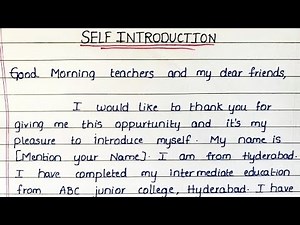 SELF INTRODUCTION
Good Morning teachers and my dear friends,
I would like to thank you for
giving me this oppurtunity and it's my
pleasure to introduce myself. My name is
[Mention your Name]. I am from Hyderabad.
I have completed my intermediate education
from ABC junior college, Hyderabad. I have